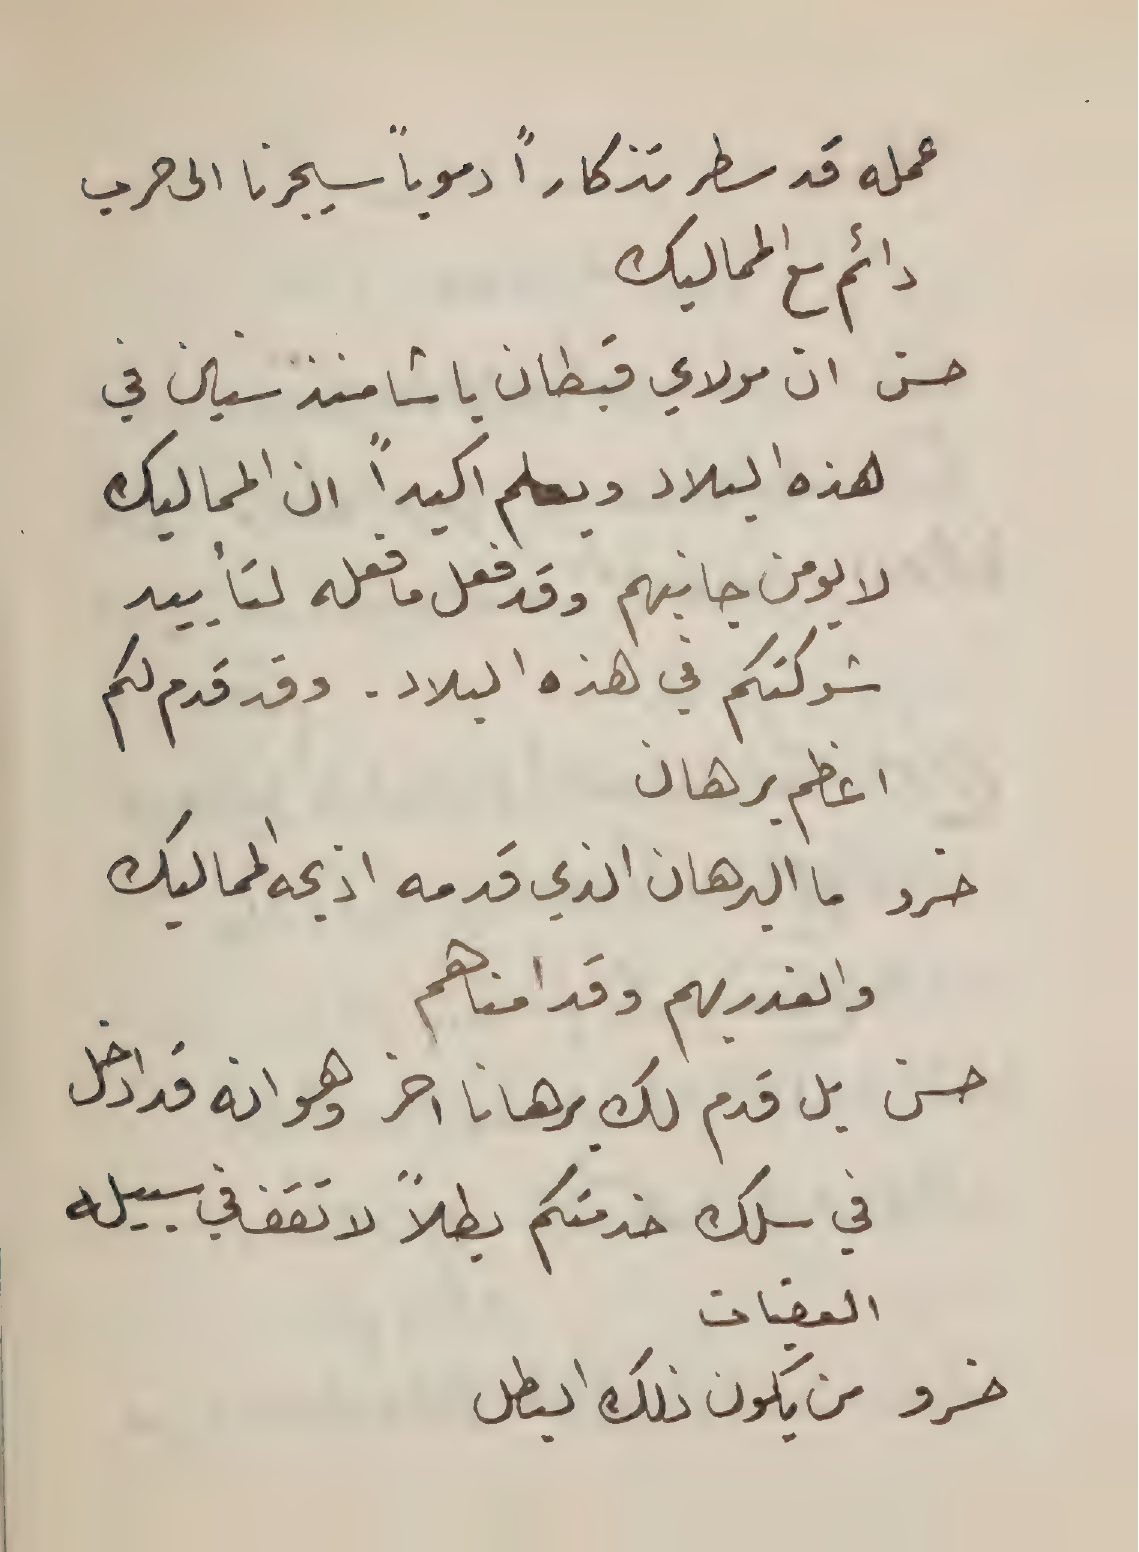 عمله قد سطر تذكاراً دموياً سيجرنا الى حرب
دائم مع المماليك
حسن ان مولاي قبطان باشا منذ سنين في
هذه البلاد ويعلم اكيداً ان المماليك
لا يومن جانبهم وقد فعل ما فعله لتأييد
شوكتكم في هذه البلاد. وقد قدم لكم
اعظم برهان
خسرو ما البرهان الذي قدمه اذبحه المماليك
والغدر بهم وقد امناهم
حسن بل قدم لك برهانا اخر وهو انه قد ادخل
في سلك خدمتكم بطلاً لا تقف في سبيله
العقبات
خسرو من يكون ذلك البطل